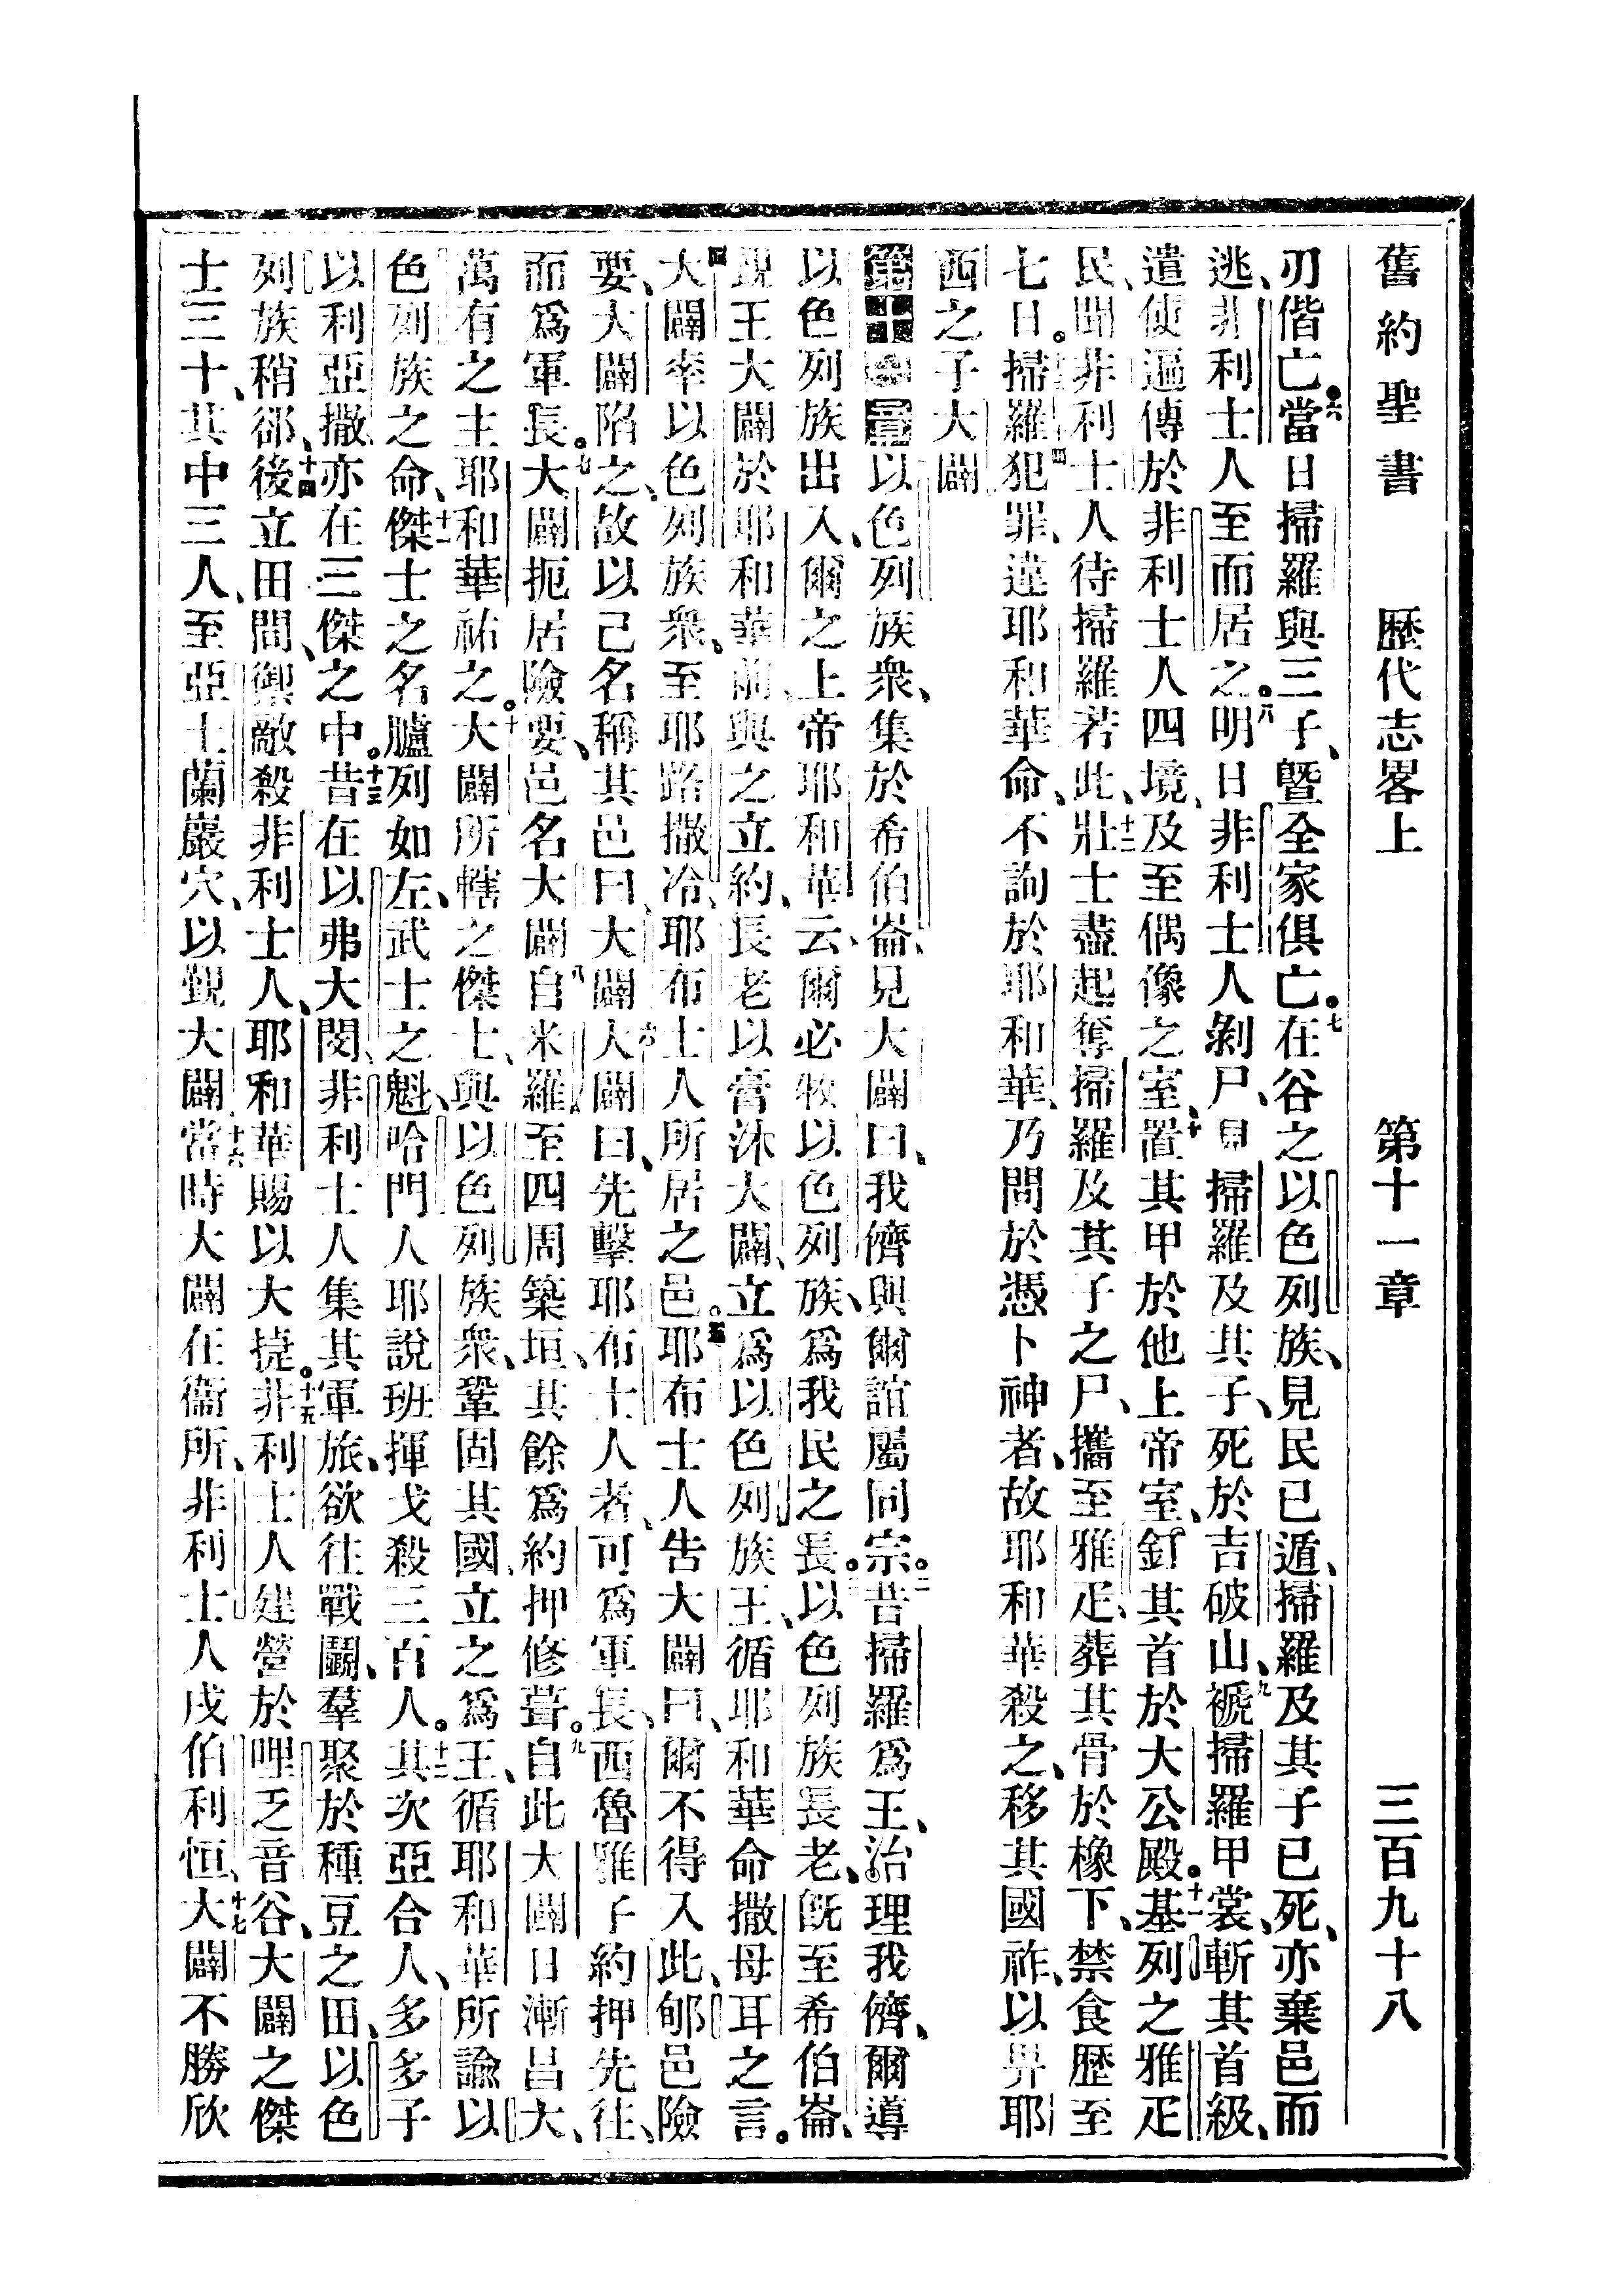 舊約聖書 歷代志畧上 第十一章 三百九十八
刃偕亡。六當日掃羅與三子、曁全家俱亡。七在谷之以色列族、見民已遁、掃羅及其子已死、亦棄邑而
逃、非利士人至而居之。八明日非利士人剝尸、見掃羅及其子、死於吉破山、九褫掃羅甲裳、斬其首級、
遣使遍傳於非利士人四境、及至偶像之室、十置其甲於他上帝室、釘其首於大公殿。十一基列之雅疋
民、聞非利士人待掃羅若此、十二壯士盡起、奪掃羅及其子之尸、攜至雅疋、葬其骨於橡下、禁食歷至
七日。掃羅犯罪、違耶和華命、不詢於耶和華、乃問於憑卜神者、十四故耶和華殺之、移其國祚、以畀耶
西之子大闢
第十一章以色列族衆、集於希伯崙、見大闢曰、我儕與爾誼屬同宗。二昔掃羅爲王、治理我儕、爾導
以色列族出入、爾之上帝耶和華云、爾必牧以色列族、爲我民之長。三以色列族長老、旣至希伯崙、
覲王大闢於耶和華前、與之立約、長老以膏沐大闢、立爲以色列族王、循耶和華命撒母耳之言。
四大闢率以色列族衆、至耶路撒冷、耶布士人所居之邑。五耶布士人告大闢曰、爾不得入此、郇邑險
要、大闢陷之、故以己名稱其邑曰大闢、六大闢曰、先擊耶布士人者、可爲軍長、西魯雅子約押先往、
而爲軍長。七大闢扼居險要、邑名大闢、八自米羅至四周築垣、其餘爲約押修葺。九自此大闢日漸昌大、
萬有之主耶和華祐之。十大闢所轄之傑士、與以色列族衆、鞏固其國、立之爲王、循耶和華所諭以
色列族之命、十一傑士之名臚列如左、武士之魁、哈門人耶說班揮戈殺三百人。十二其次亞合人、多多子
以利亞撒、亦在三傑之中。十三昔在以弗大閔、非利士人集其軍旅、欲往戰鬭、羣聚於種豆之田、以色
列族稍郤、十四後立田間、禦敵殺非利士人、耶和華賜以大捷。十五非利士人建營於哩乏音谷、大闢之傑
士三十、其中三人、至亞土蘭巖穴、以覲大闢、十六當時大闢在衞所、非利士人戍伯利恒、十七大闢不勝欣